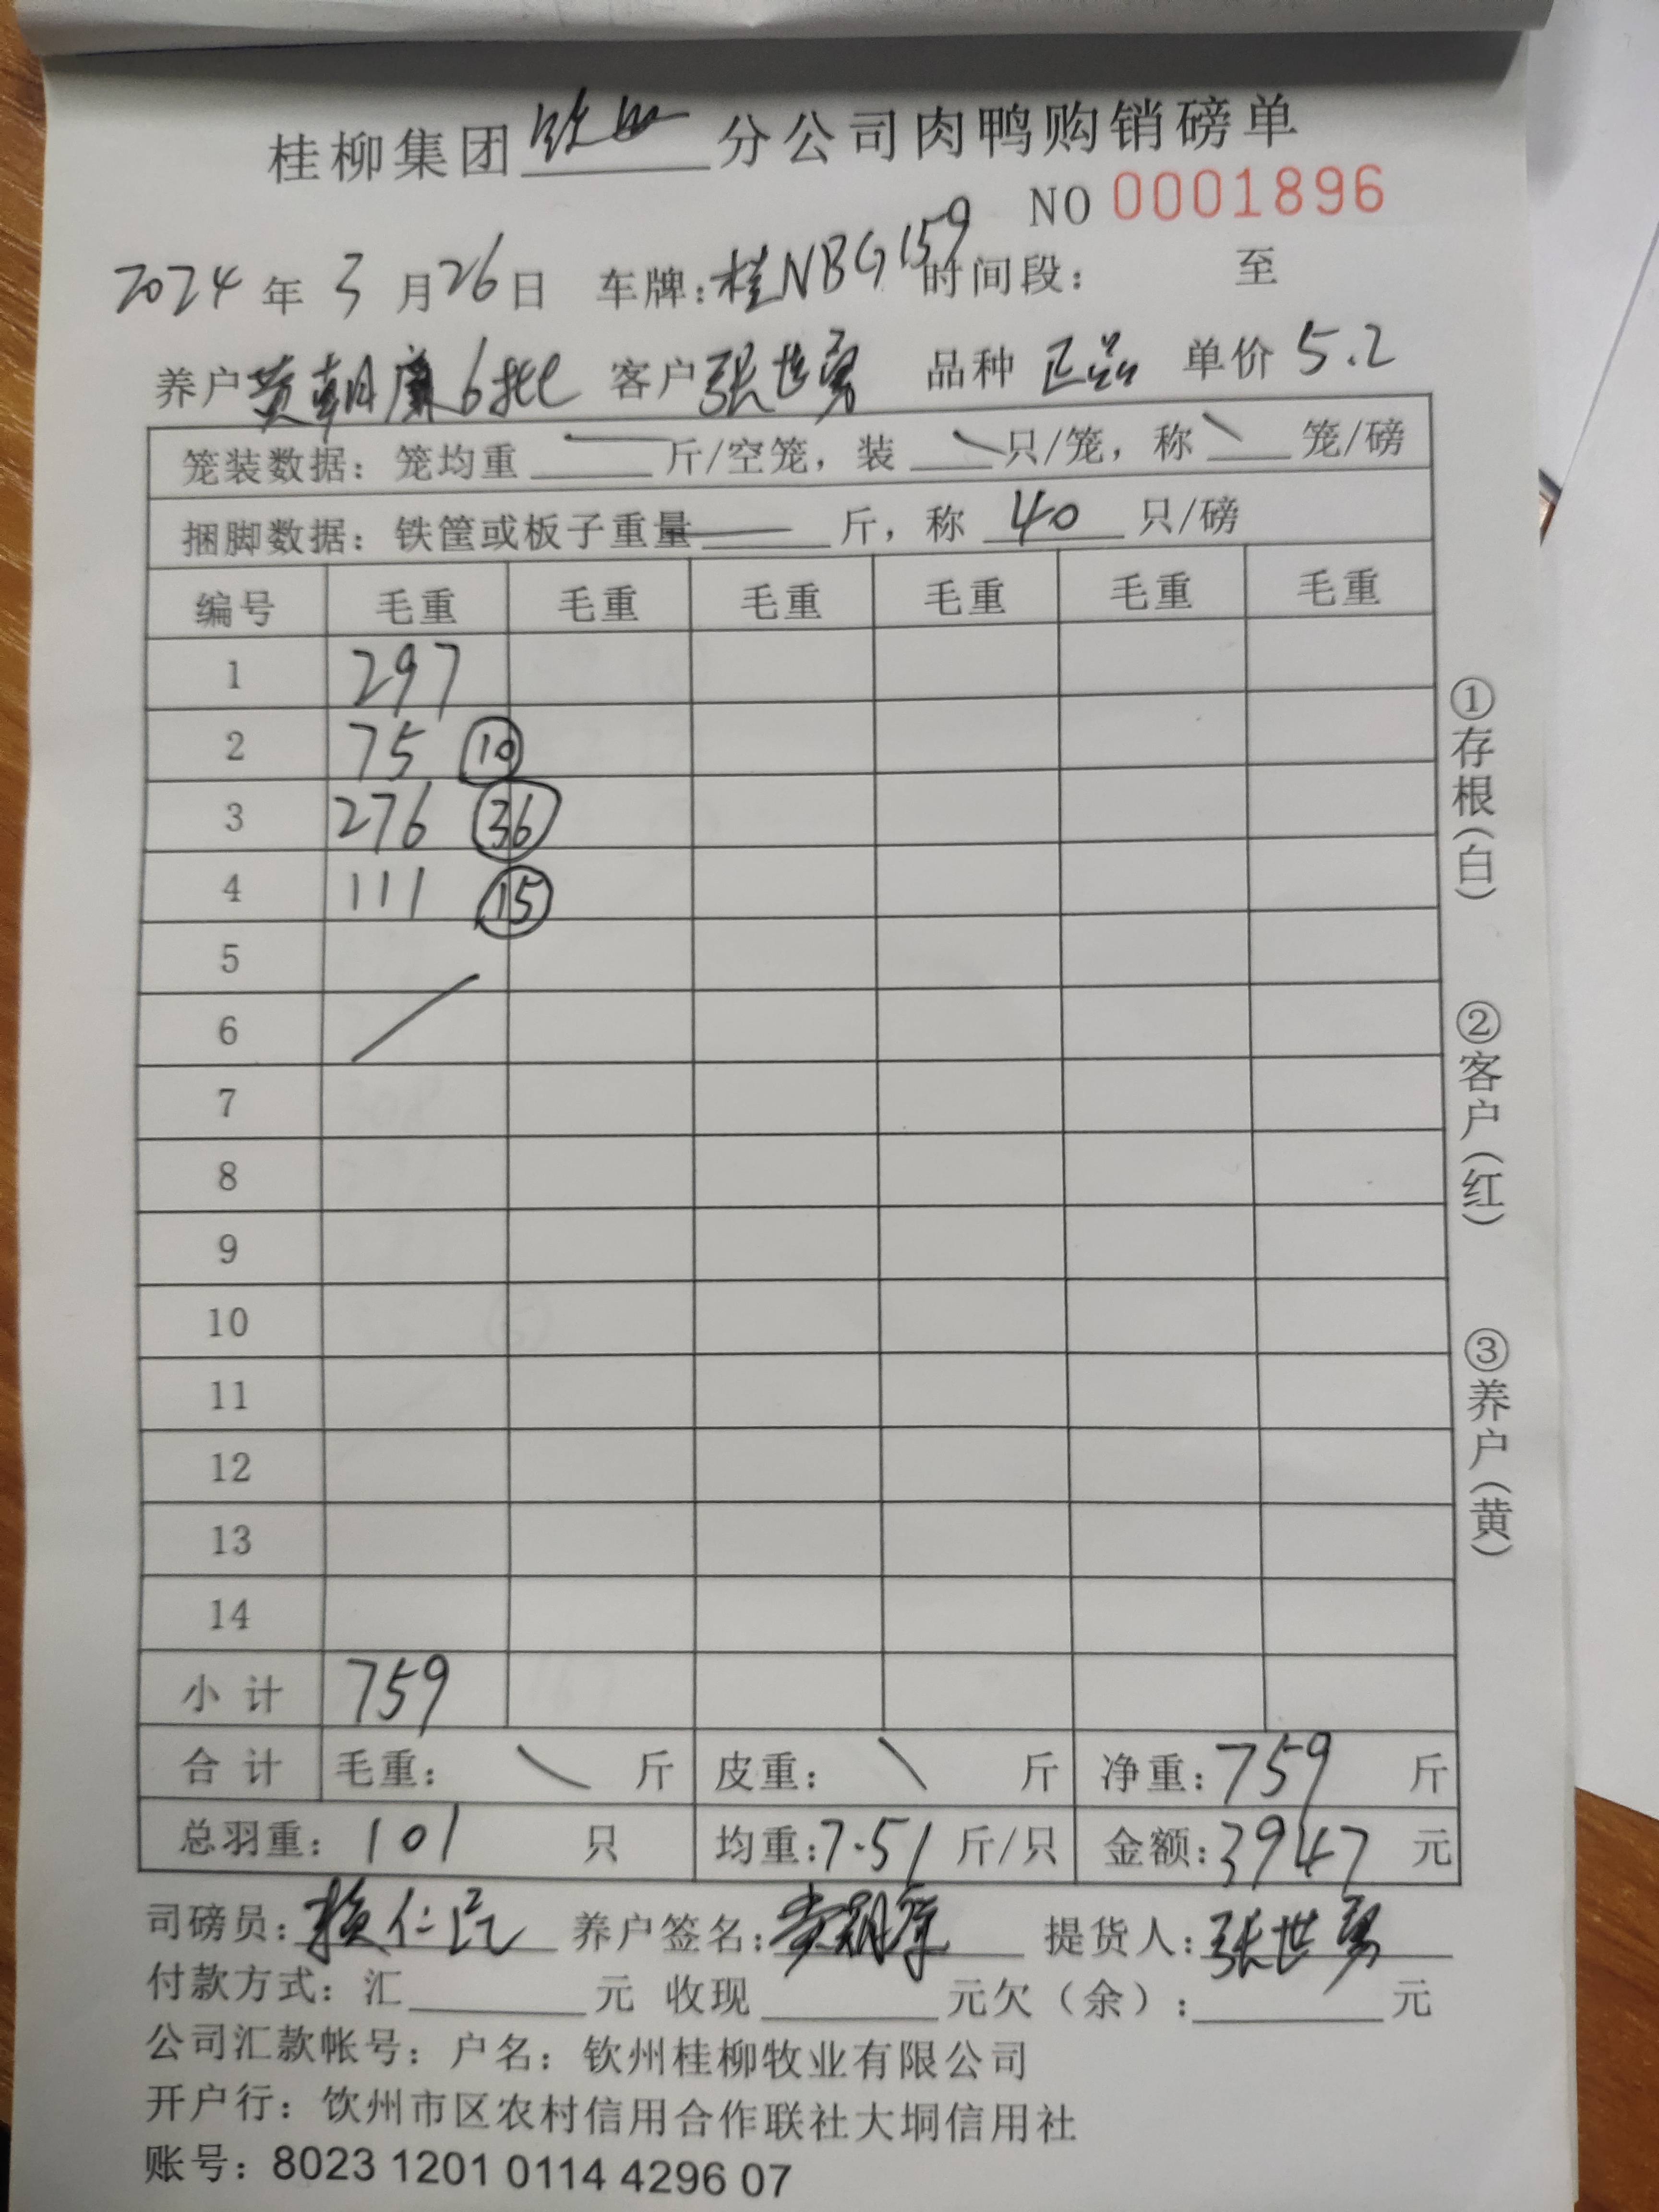 桂柳集团钦州分公司肉鸭购销磅单
NO 0001896
2024年3月26日 车牌:桂NBG159 时间段: 至
养户黄朝康6批 客户张世勇 品种正品 单价5.2
笼装数据:笼均重 斤/空笼,装 只/笼,称 笼/磅
捆脚数据:铁筐或板子重量 斤,称 40 只/磅
编号 毛重 毛重 毛重 毛重 毛重 毛重
1 297
2 75 ⑩
3 276 ㊱
4 111 ⑮
5
6
7
8
9
10
11
12
13
14
小计 759
合计 毛重: 斤 皮重: 斤 净重:759 斤
总羽重:101 只 均重:7.51 斤/只 金额:3947 元
司磅员: 养户签名:黄朝康 提货人:张世勇
付款方式:汇 元 收现 元欠(余): 元
公司汇款帐号:户名:钦州桂柳牧业有限公司
开户行:钦州市区农村信用合作联社大垌信用社
账号:8023 1201 0114 4296 07
①存根(白)
②客户(红)
③养户(黄)